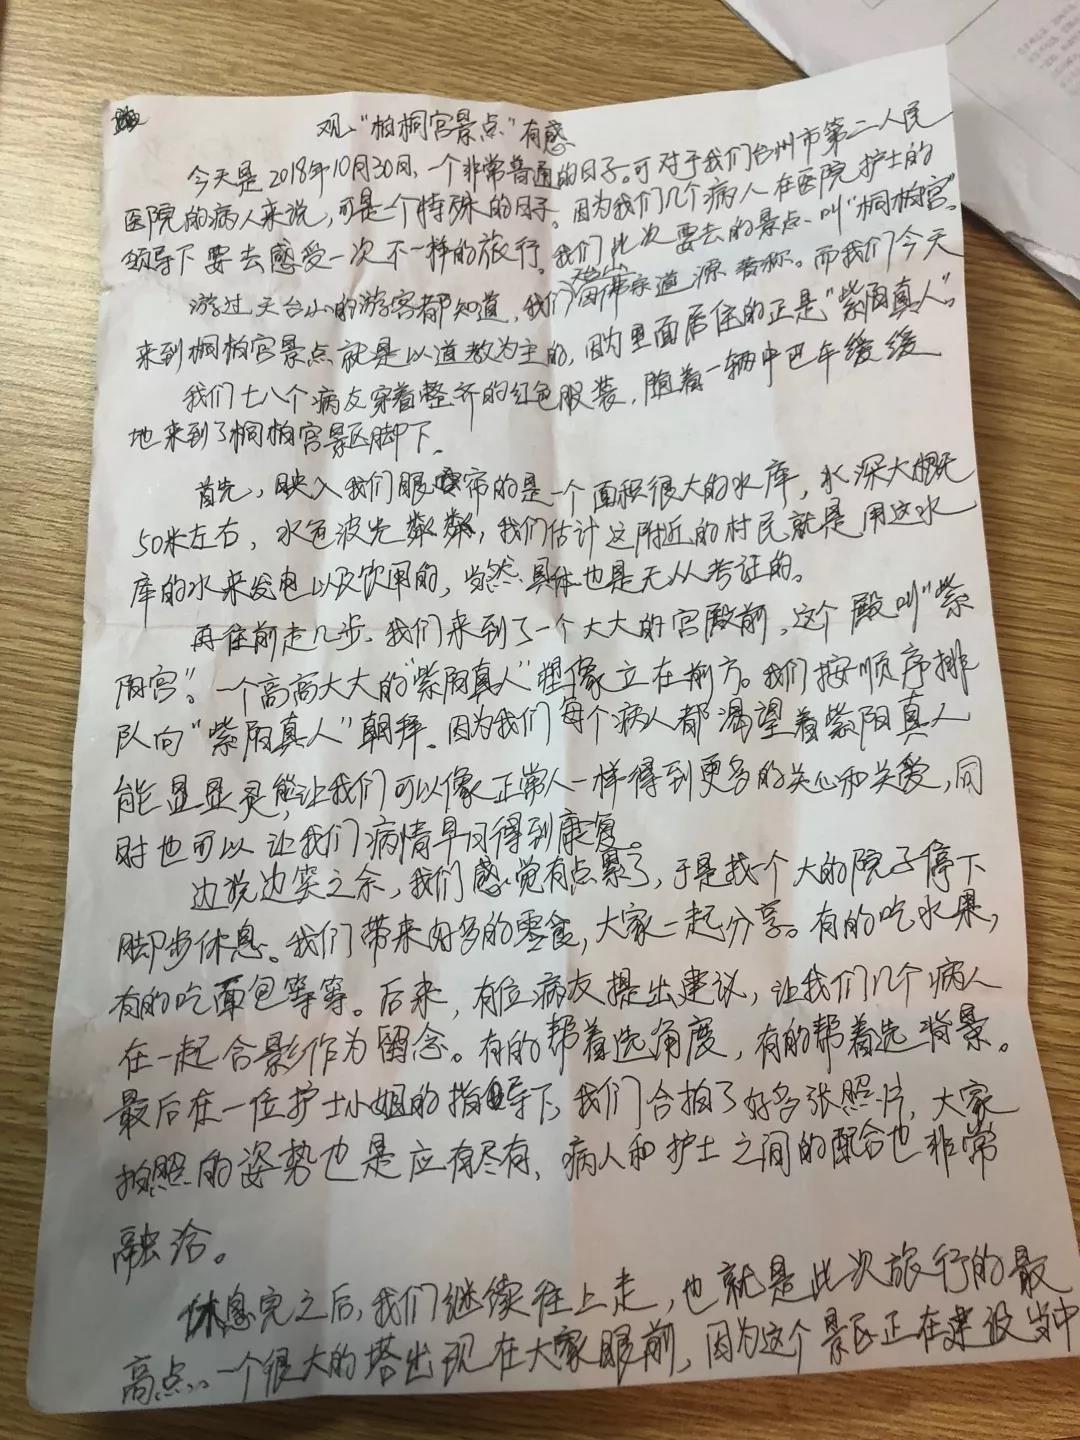 观“柏桐宫景点”有感
今天是2018年10月30日，一个非常普通的日子。可对于我们台州市第二人民
医院的病人来说，可是一个特殊的日子。因为我们几个病人在医院护士的
领导下要去感受一次不一样的旅行。我们此次要去的景点、叫“桐柏宫”。
游过天台山的游客都知道，我们天台山因佛宗道源著称。而我们今天
来到桐柏宫景点就是以道教为主的，因为里面居住的正是“紫阳真人”。
我们七八个病友穿着整齐的红色服装，随着一辆中巴车缓缓
地来到了桐柏宫景区脚下。
首先，映入我们眼帘的是一个面积很大的水库，水深大概
50米左右，水色波光粼粼，我们估计这附近的村民就是用这水
库的水来发电以及饮用的，当然具体也是无从考证的。
再往前走几步、我们来到了一个大大的宫殿前，这个殿叫“紫
阳宫”。一个高高大大的“紫阳真人”塑像立在前方。我们按顺序排
队向“紫阳真人”朝拜、因为我们每个病人都渴望着紫阳真人
能显显灵能让我们可以像正常人一样得到更多的关心和关爱，同
时也可以让我们病情早日得到康复。
边说边笑之余，我们感觉有点累了，于是找个大的院子停下
脚步休息。我们带来好多的零食，大家一起分享。有的吃水果，
有的吃面包等等。后来，有位病友提出建议，让我们几个病人
在一起合影作为留念。有的帮着选角度，有的帮着选背景。
最后在一位护士小姐的指导下，我们合拍了好多张照片，大家
拍照的姿势也是应有尽有、病人和护士之间的配合也非常
融洽。
休息完之后，我们继续往上走，也就是此次旅行的最
高点。一个很大的塔出现在大家眼前，因为这个景区正在建设当中